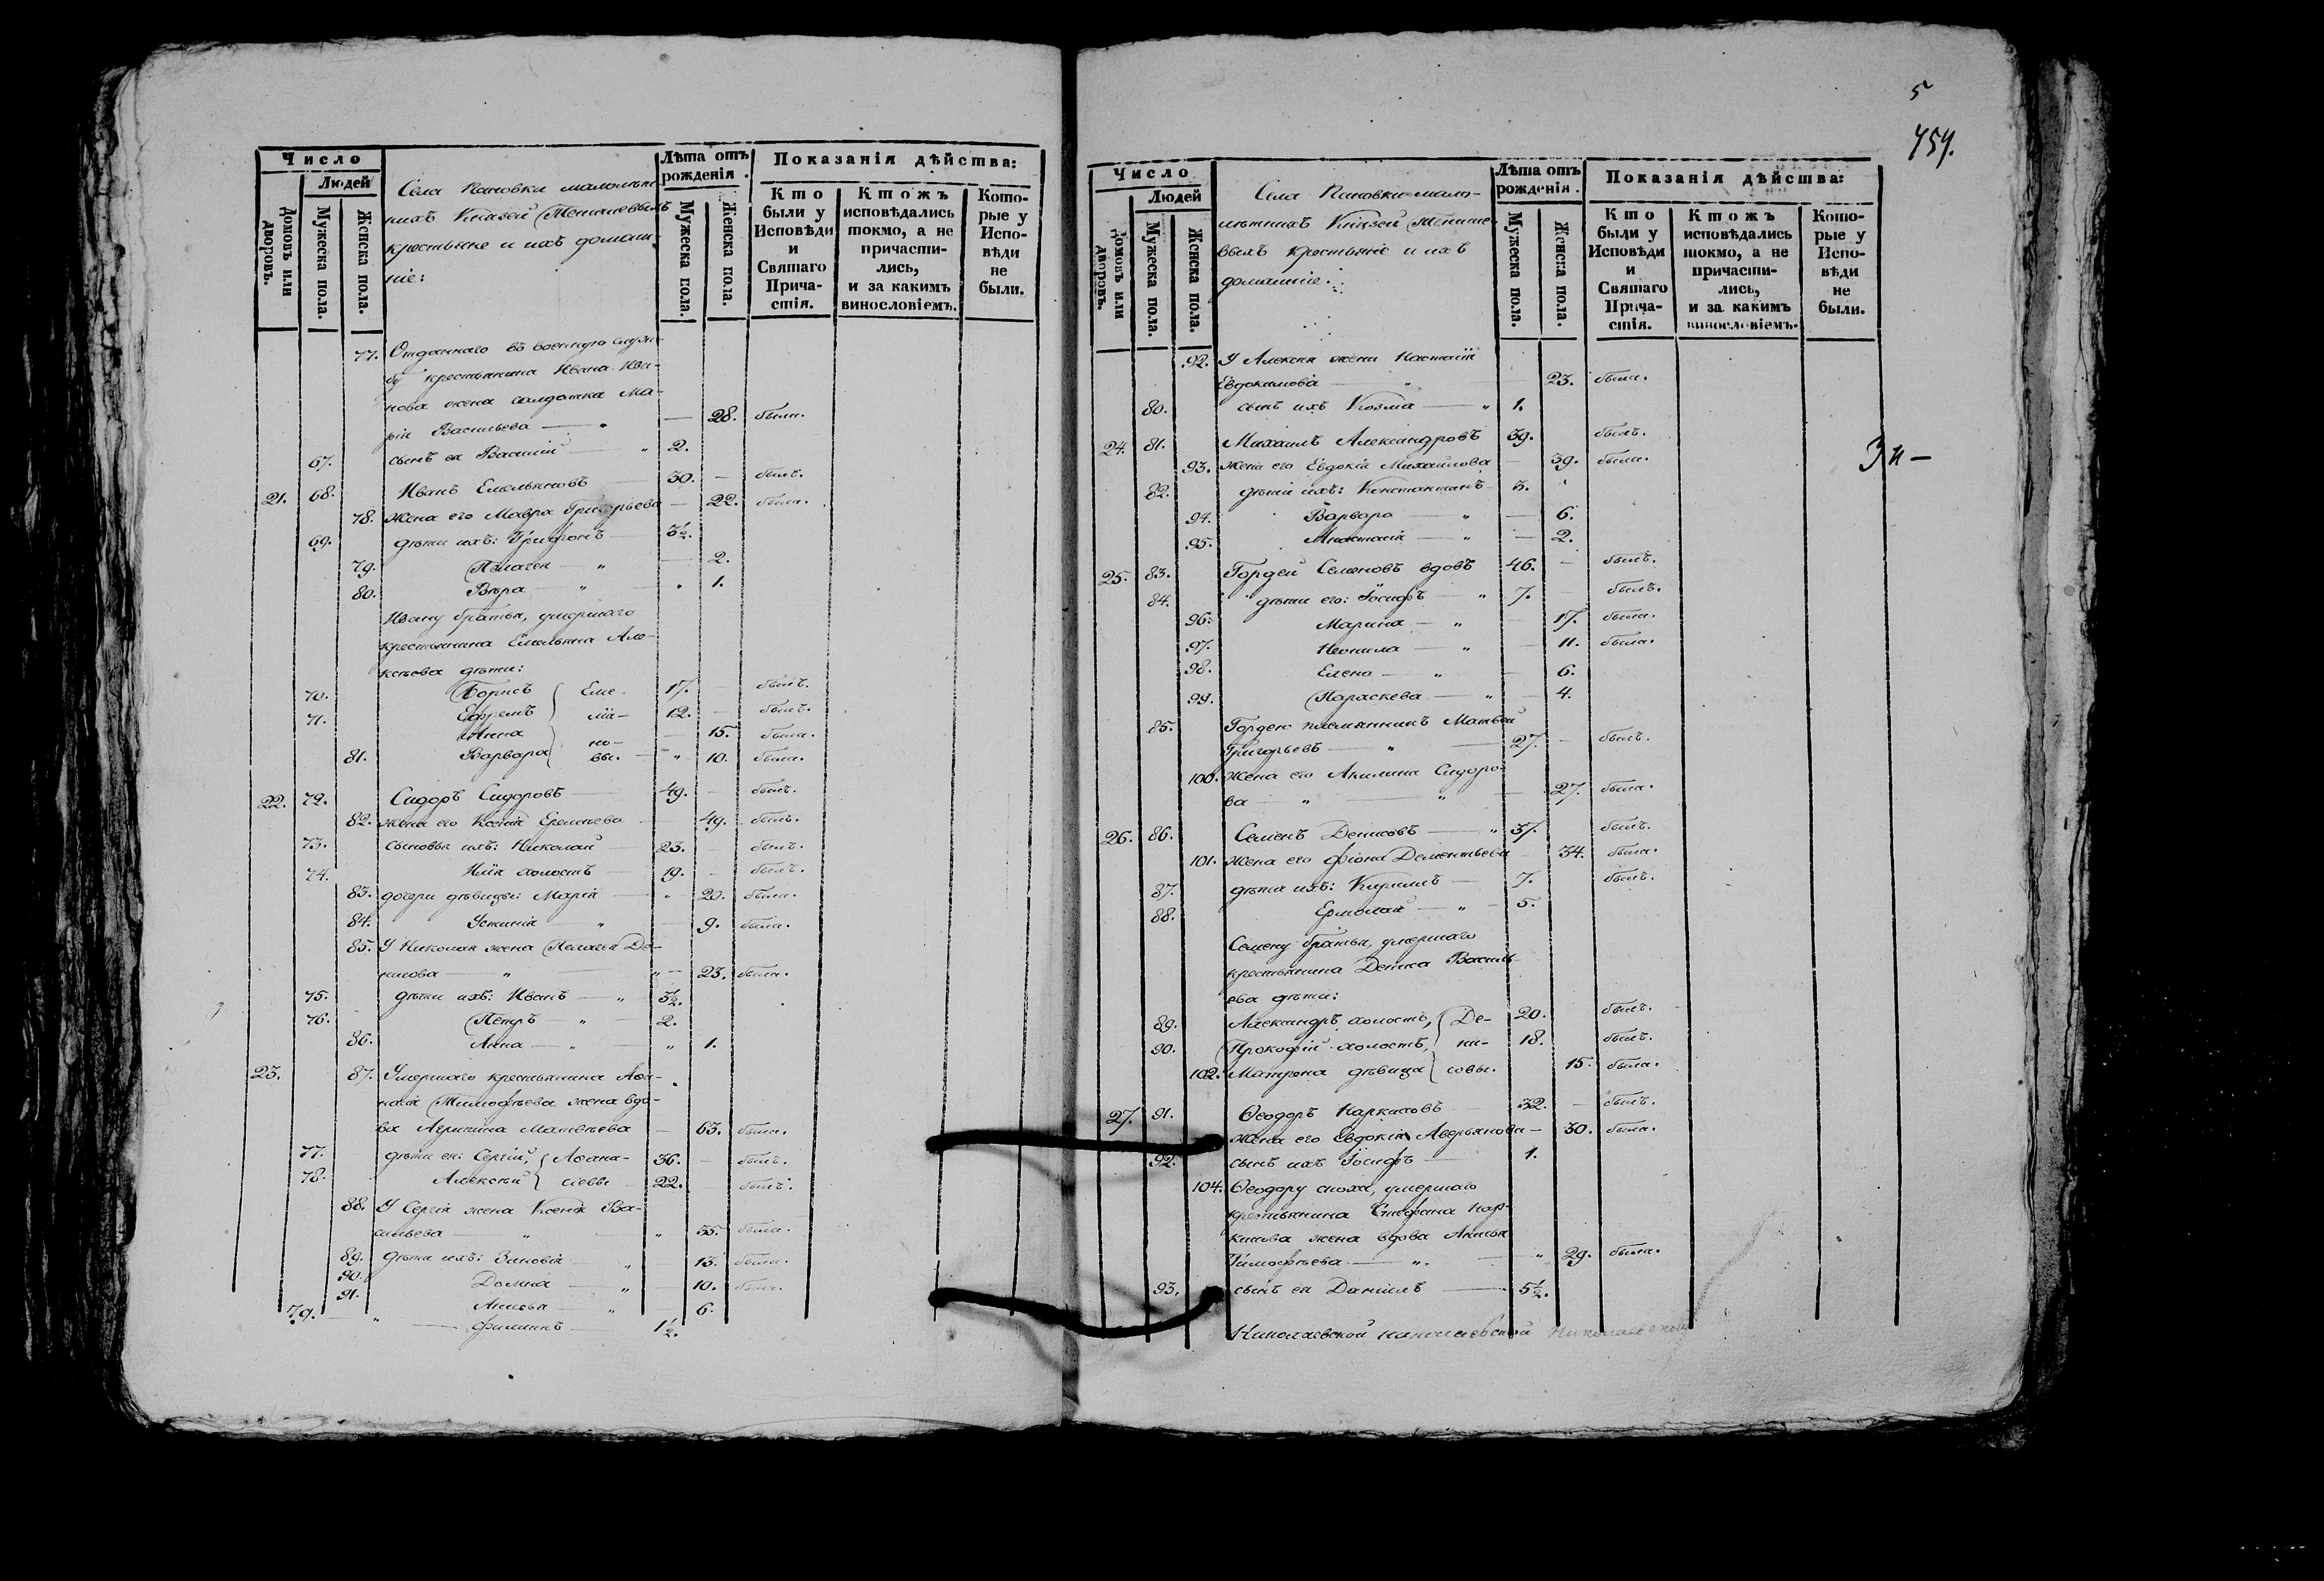 Число
Людей
Домовъ или дворовъ.
Мужеска пола.
Женска пола.
Села Пановки малолѣт-
нихъ Князей Тенишевыхъ
крестьяне и ихъ домаш-
ніе:
Лѣта отъ рожденія.
Мужеска пола.
Женска пола.
Показанія дѣйства:
Кто были у Исповѣди и Святаго Причастія.
Ктожъ исповѣдались токмо, а не причастились, и за какимъ винословіемъ.
Которые у Исповѣди не были.
77. Отданнаго въ военную служ-
бу крестьянина Ивана Ива-
нова жена солдатка Ма-
рія Васильева — 28. была.
67. сынъ ея Василій 2.
21. 68. Иванъ Емельяновъ 30. — былъ.
78. Жена его Мавра Григорьева — 22. была.
69. дѣти ихъ: Трифонъ 3½.
79. Пелагея — 2.
80. Вѣра 1.
Ивану братья, умершаго
крестьянина Емельяна Але-
ксѣева дѣти:
70. Борисъ Еме- 17. — былъ.
71. Ефремъ лія- 12. — былъ.
Анна но- — 15. была.
81. Варвара вы. 10. была.
22. 72. Сидоръ Сидоровъ 49. — былъ.
82. жена его Ксенія Еремѣева — 49. былъ.
73. сыновья ихъ: Николай 23. — былъ.
74. Илія холостъ 19. — былъ.
83. дочери дѣвицы: Марія 20. была.
84. Устинія — 9. была.
85. У Николая жена Пелагея Да-
нилова 23. была.
75. дѣти ихъ: Иванъ 3½.
76. Петръ 2.
86. Анна 1.
23. 87. Умершаго крестьянина Аѳа-
насія Тимофѣева жена вдо-
ва Агрипина Матвѣева — 63. была.
77. дѣти ея: Сергій, Аѳана- 36. — былъ.
78. Алексѣй сіевы 22. — былъ.
88. У Сергія жена Ксенія Ва-
сильева 35. была.
89. дѣти ихъ: Зиновія 13. была.
90. Домна 10. была.
91. Анисья 6.
79. Филиппъ 1½.
5
759.
Число
Людей
Домовъ или дворовъ.
Мужеска пола.
Женска пола.
Села Пановки мало-
лѣтнихъ Князей Тенише-
выхъ крестьяніе и ихъ
домашніе:
Лѣта отъ рожденія.
Мужеска пола.
Женска пола.
Показанія дѣйства:
Кто были у Исповѣди и Святаго Причастія.
Ктожъ исповѣдались токмо, а не причастились, и за какимъ винословіемъ.
Которые у Исповѣди не были.
92. У Алексѣя жена Настасія
Евдокимова — 23. была.
80. сынъ ихъ Козма 1.
24. 81. Михаилъ Александровъ 39. былъ.
93. Жена его Евдокія Михайлова — 39. была.
82. дѣти ихъ: Константинъ 3.
94. Варвара — 6.
95. Анастасія — 2.
25. 83. Гордей Семеновъ вдовъ 46. — былъ.
84. дѣти его: Іосифъ 7. — былъ.
96. Марина — 17. была.
97. Неонила — 11. была.
98. Елена — 6.
99. Параскева — 4.
85. Гордею племянникъ Матвей
Григорьевъ 27. — былъ.
100. Жена его Акилина Сидоро-
ва — 27. была.
26. 86. Семенъ Денисовъ 37. былъ.
101. Жена его Фіона Дементьева 34. была.
87. дѣти ихъ: Кирилъ 7. былъ.
88. Ермолай 5.
Семену братья, умершаго
крестьянина Дениса Василь-
ева дѣти:
89. Александръ холостъ, Де- 20. былъ.
90. Прокофій холостъ, ни- 18. былъ.
102. Матрона дѣвица совы. 15. была.
27. 91. Ѳеодоръ Карповъ 32. — былъ.
Жена его Евдокія Аверьянова — 30. была.
92. сынъ ихъ Іосифъ 1.
104. Ѳеодору сноха, умершаго
крестьянина Стефана
жена вдова Анисья
Тимофѣева 29. была.
93. сынъ ея Даніилъ 5½.
Николаевской